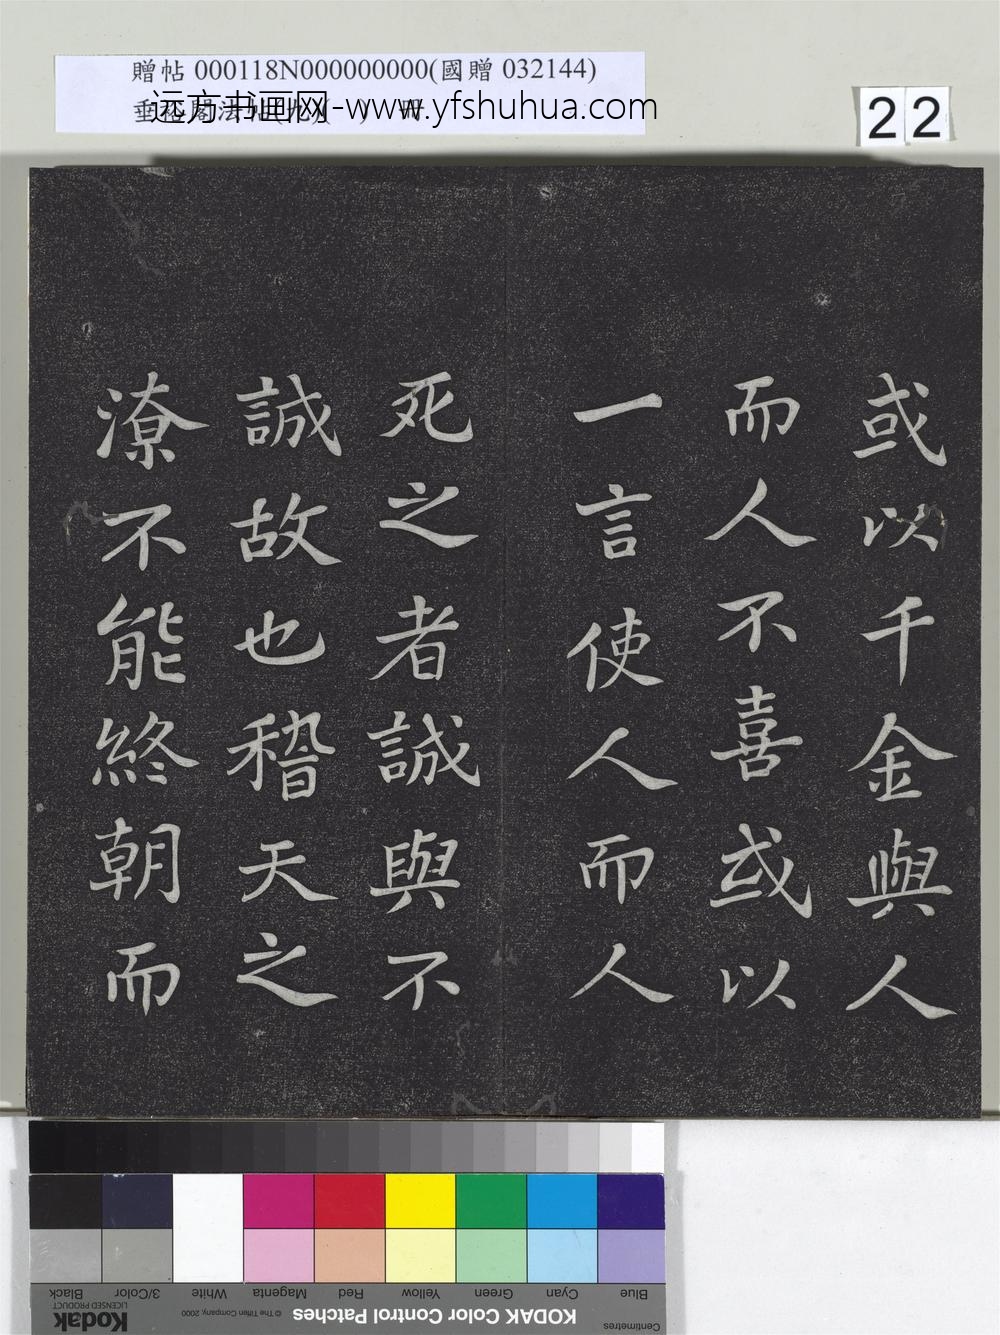 贈帖 000118N000000000(國贈 032144)
远方书画网-www.yfshuhua.com
22
或以千金與人
而人不喜或以
一言使人而人
死之者誠與不
誠故也稽天之
潦不能終朝而
Blue Cyan Green Yellow Red Magenta White 3/Color Black
Centimetres
KODAK Color Control Patches
© The Tiffen Company, 2000
Kodak
LICENSED PRODUCT